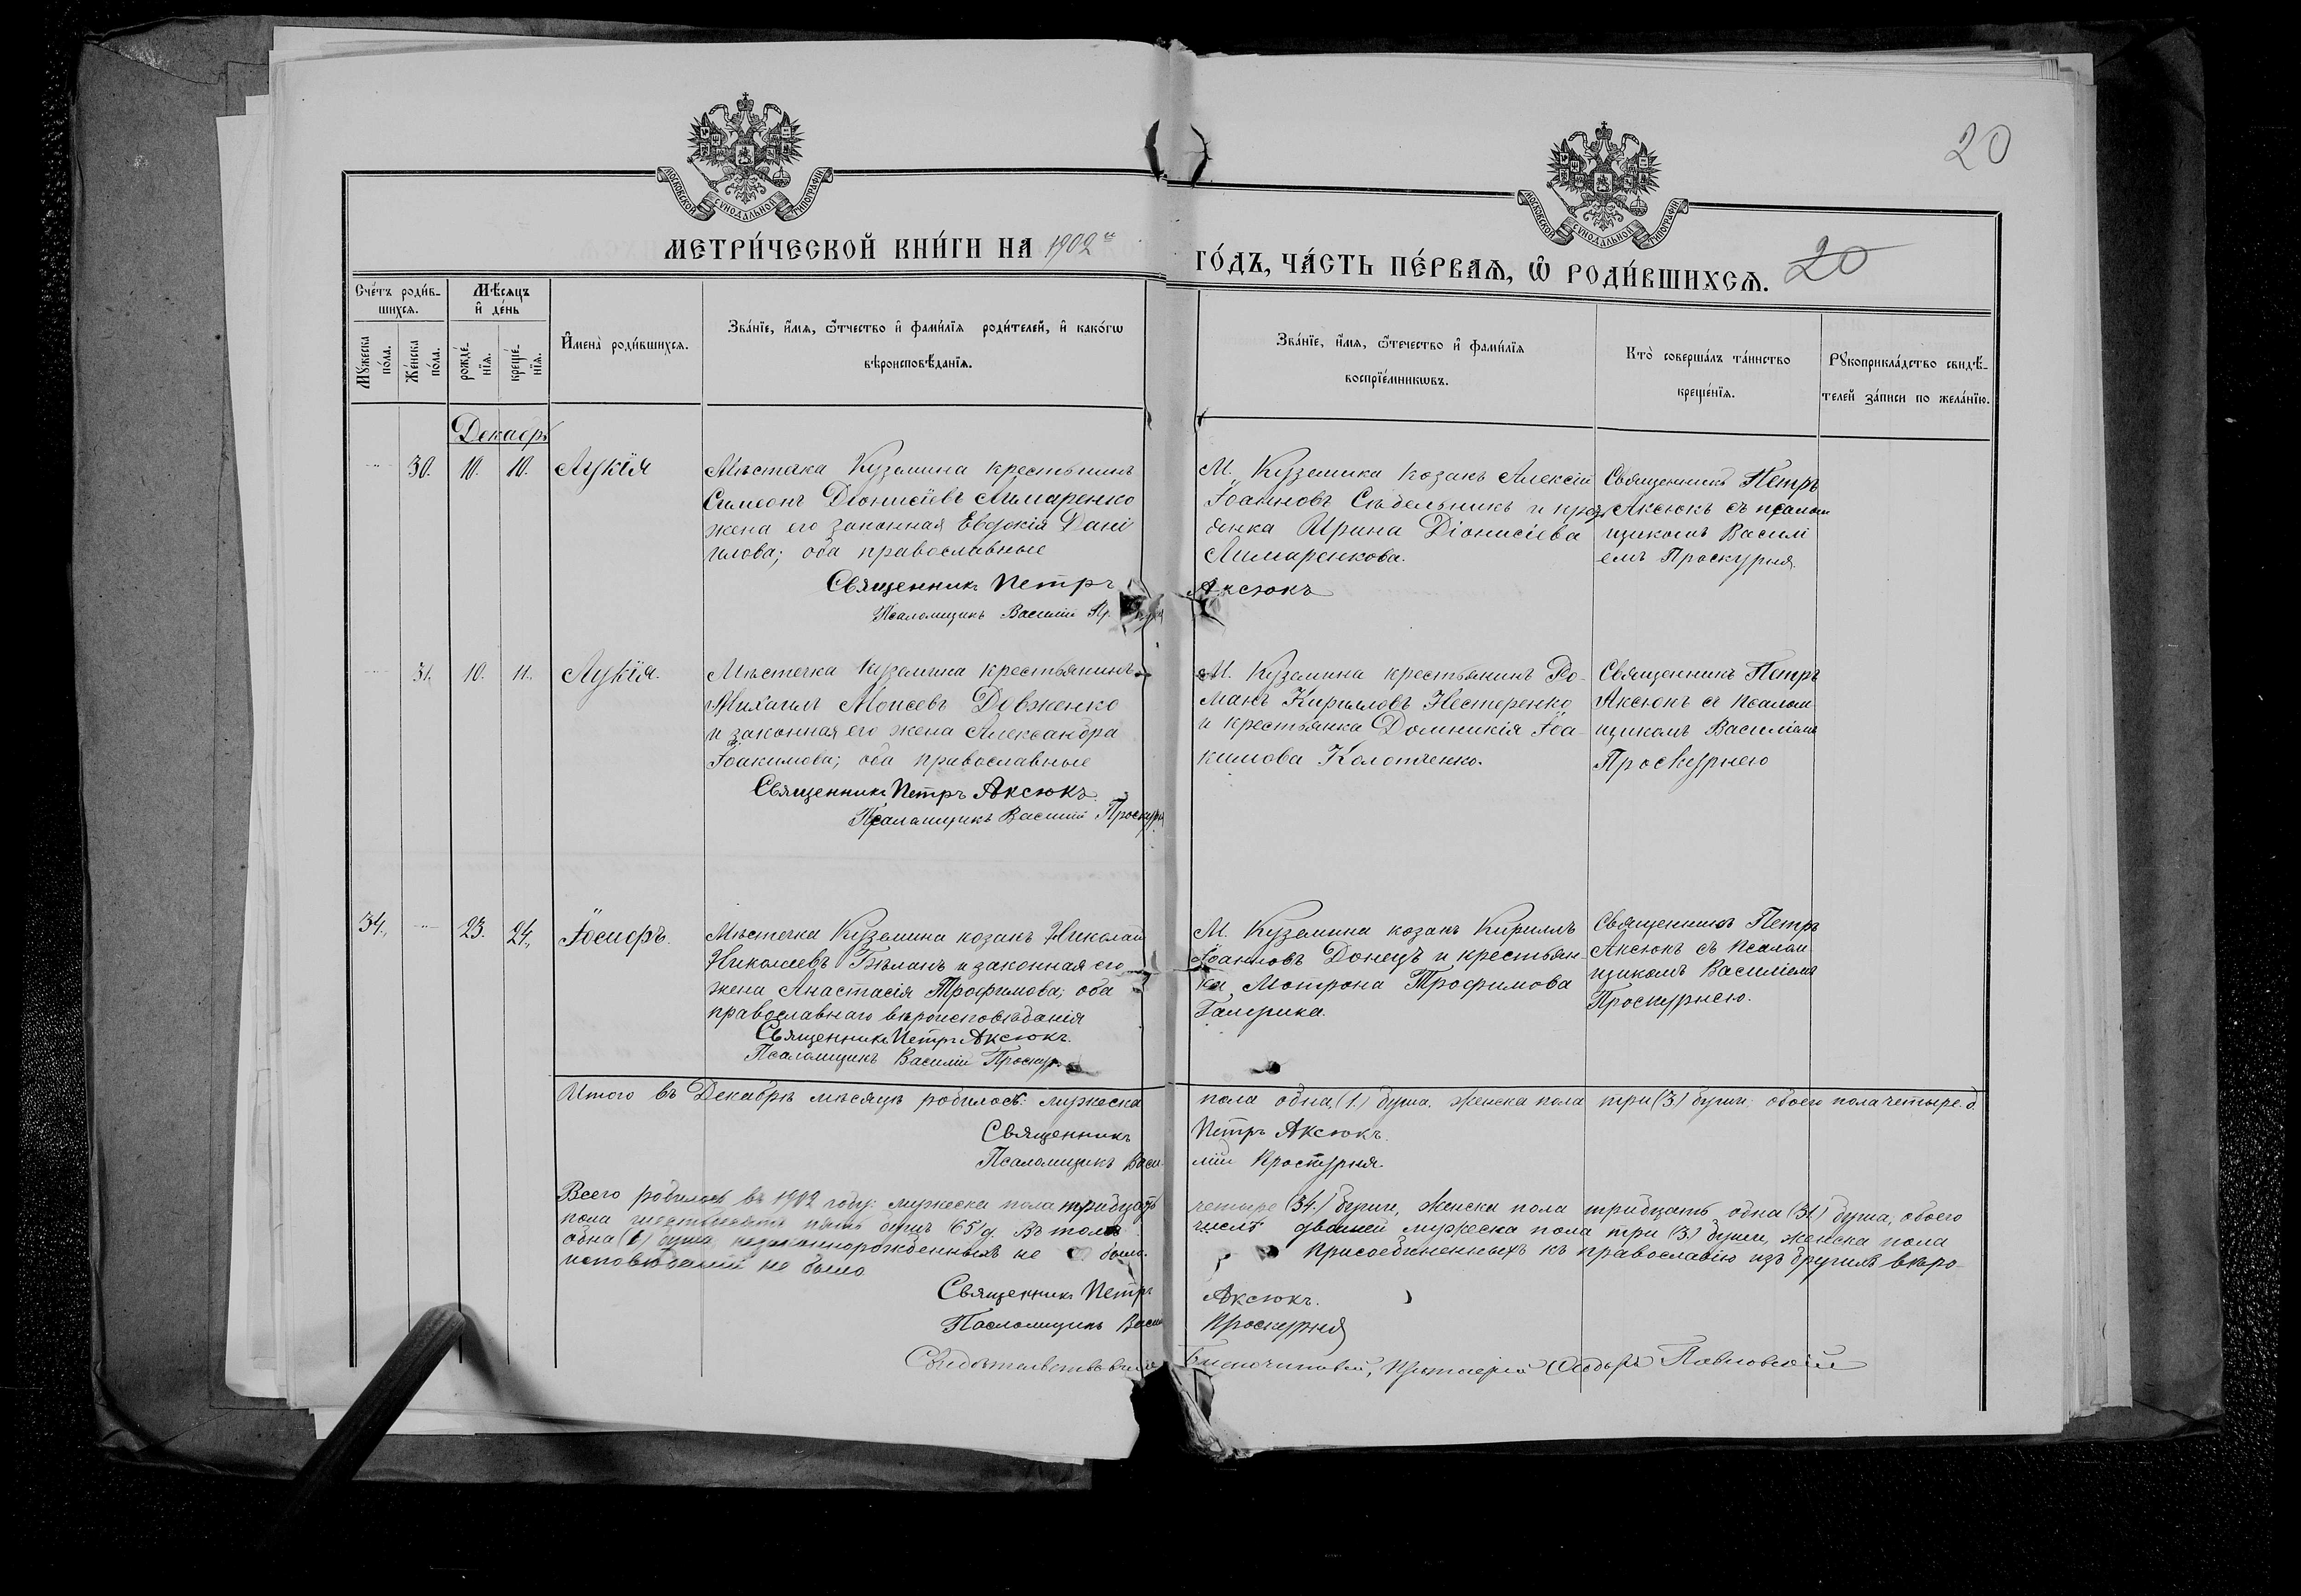 20
МОСКОВСКОЙ СѴНОДАЛЬНОЙ ТИПОГРАФІИ
МОСКОВСКОЙ СѴНОДАЛЬНОЙ ТИПОГРАФІИ
МЕТРИ́ЧЕСКОЙ КНИ́ГИ НА 1902й ГО́ДЪ, ЧА́СТЬ ПЕ́РВАѦ, Ѡ҆ РОДИ́ВШИХСѦ. 20
Сче́тъ роди́в-
шихсѧ.
Мꙋ́жеска по́ла.
Же́нска по́ла.
Мѣ́сѧцъ
и҆ де́нь
рожде́-
нїѧ.
креще́-
нїѧ.
И҆мена̀ роди́вшихсѧ.
Зва́нїе, и҆́мѧ, ѻ҆́тчество и҆ фами́лїѧ роди́телей, и҆ како́гѡ
вѣроисповѣ́данїѧ.
Зва́нїе, и҆́мѧ, ѻ҆́течество и҆ фами́лїѧ
воспрїе́мникѡвъ.
Кто̀ соверша́лъ та́инство
креще́нїѧ.
Рꙋкоприкла́дство свидѣ́-
телей за́писи по жела́нїю.
Декабрь
30. 10. 10. Лукія
Мѣстечка Куземина крестьянинъ
Симеонъ Діонисіевъ Лимаренко
жена его законная Евдокія Дані
илова; оба православные
М. Куземина козакъ Алексій
Іоанновъ Сѣдельникъ и крест
янка Ирина Діонисіева
Лимаренкова.
Священникъ Петръ
Аксюкъ съ псалом
щикомъ Василі
емъ Проскурня.
Священникъ Петръ Аксюкъ
Псаломщикъ Василій
31. 10. 11. Лукія.
Мѣстечка Куземина крестьянинъ
Михаилъ Моисеевъ Довженко
и законная его жена Александра
Іоакимова; оба православные
М. Куземина крестьянинъ Ро-
манъ Кирилловъ Нестеренко
и крестьянка Домникія Іоа-
кимова Колотченко.
Священникъ Петръ
Аксюкъ съ псалом
щикомъ Василіемъ
Проскурнею
Священникъ Петръ Аксюкъ.
Псаломщикъ Василій Проскурня
34. 23. 24. Іосифъ.
Мѣстечка Куземина козакъ Николай
Николаевъ Бѣланъ и законная его
жена Анастасія Трофимова; оба
православнаго вѣроисповѣданія
М. Куземина козакъ Кириллъ
Іоанновъ Донецъ и крестьян-
ка Мотрона Трофимова
Священникъ Петръ
Аксюкъ съ псалом
щикомъ Василіемъ
Проскурнею.
Священникъ Петръ Аксюкъ.
Псаломщикъ Василій Проскур
Итого въ Декабрѣ мѣсяцѣ родилось: мужеска пола одна (1.) душа. женска пола три (3.) души; обоего пола четыре. д
Священникъ Петръ Аксюкъ.
Псаломщикъ Василій Проскурня.
Всего родилось въ 1902 году: мужеска пола тридцать четыре (34.) души, женска пола тридцать одна (31.) душа, обоего
пола шестьдесятъ пять душъ (65) д. Въ томъ числѣ двойней мужеска пола три (3.) души, женска пола
одна (1) душа, незаконнорожденныхъ не было. Присоединенныхъ къ православію изъ другихъ вѣро-
исповѣданій не было
Священникъ Петръ Аксюкъ.
Псаломщикъ Василій Проскурня
Свидѣтельствовалъ Благочинный, Протоіерей Павловскій